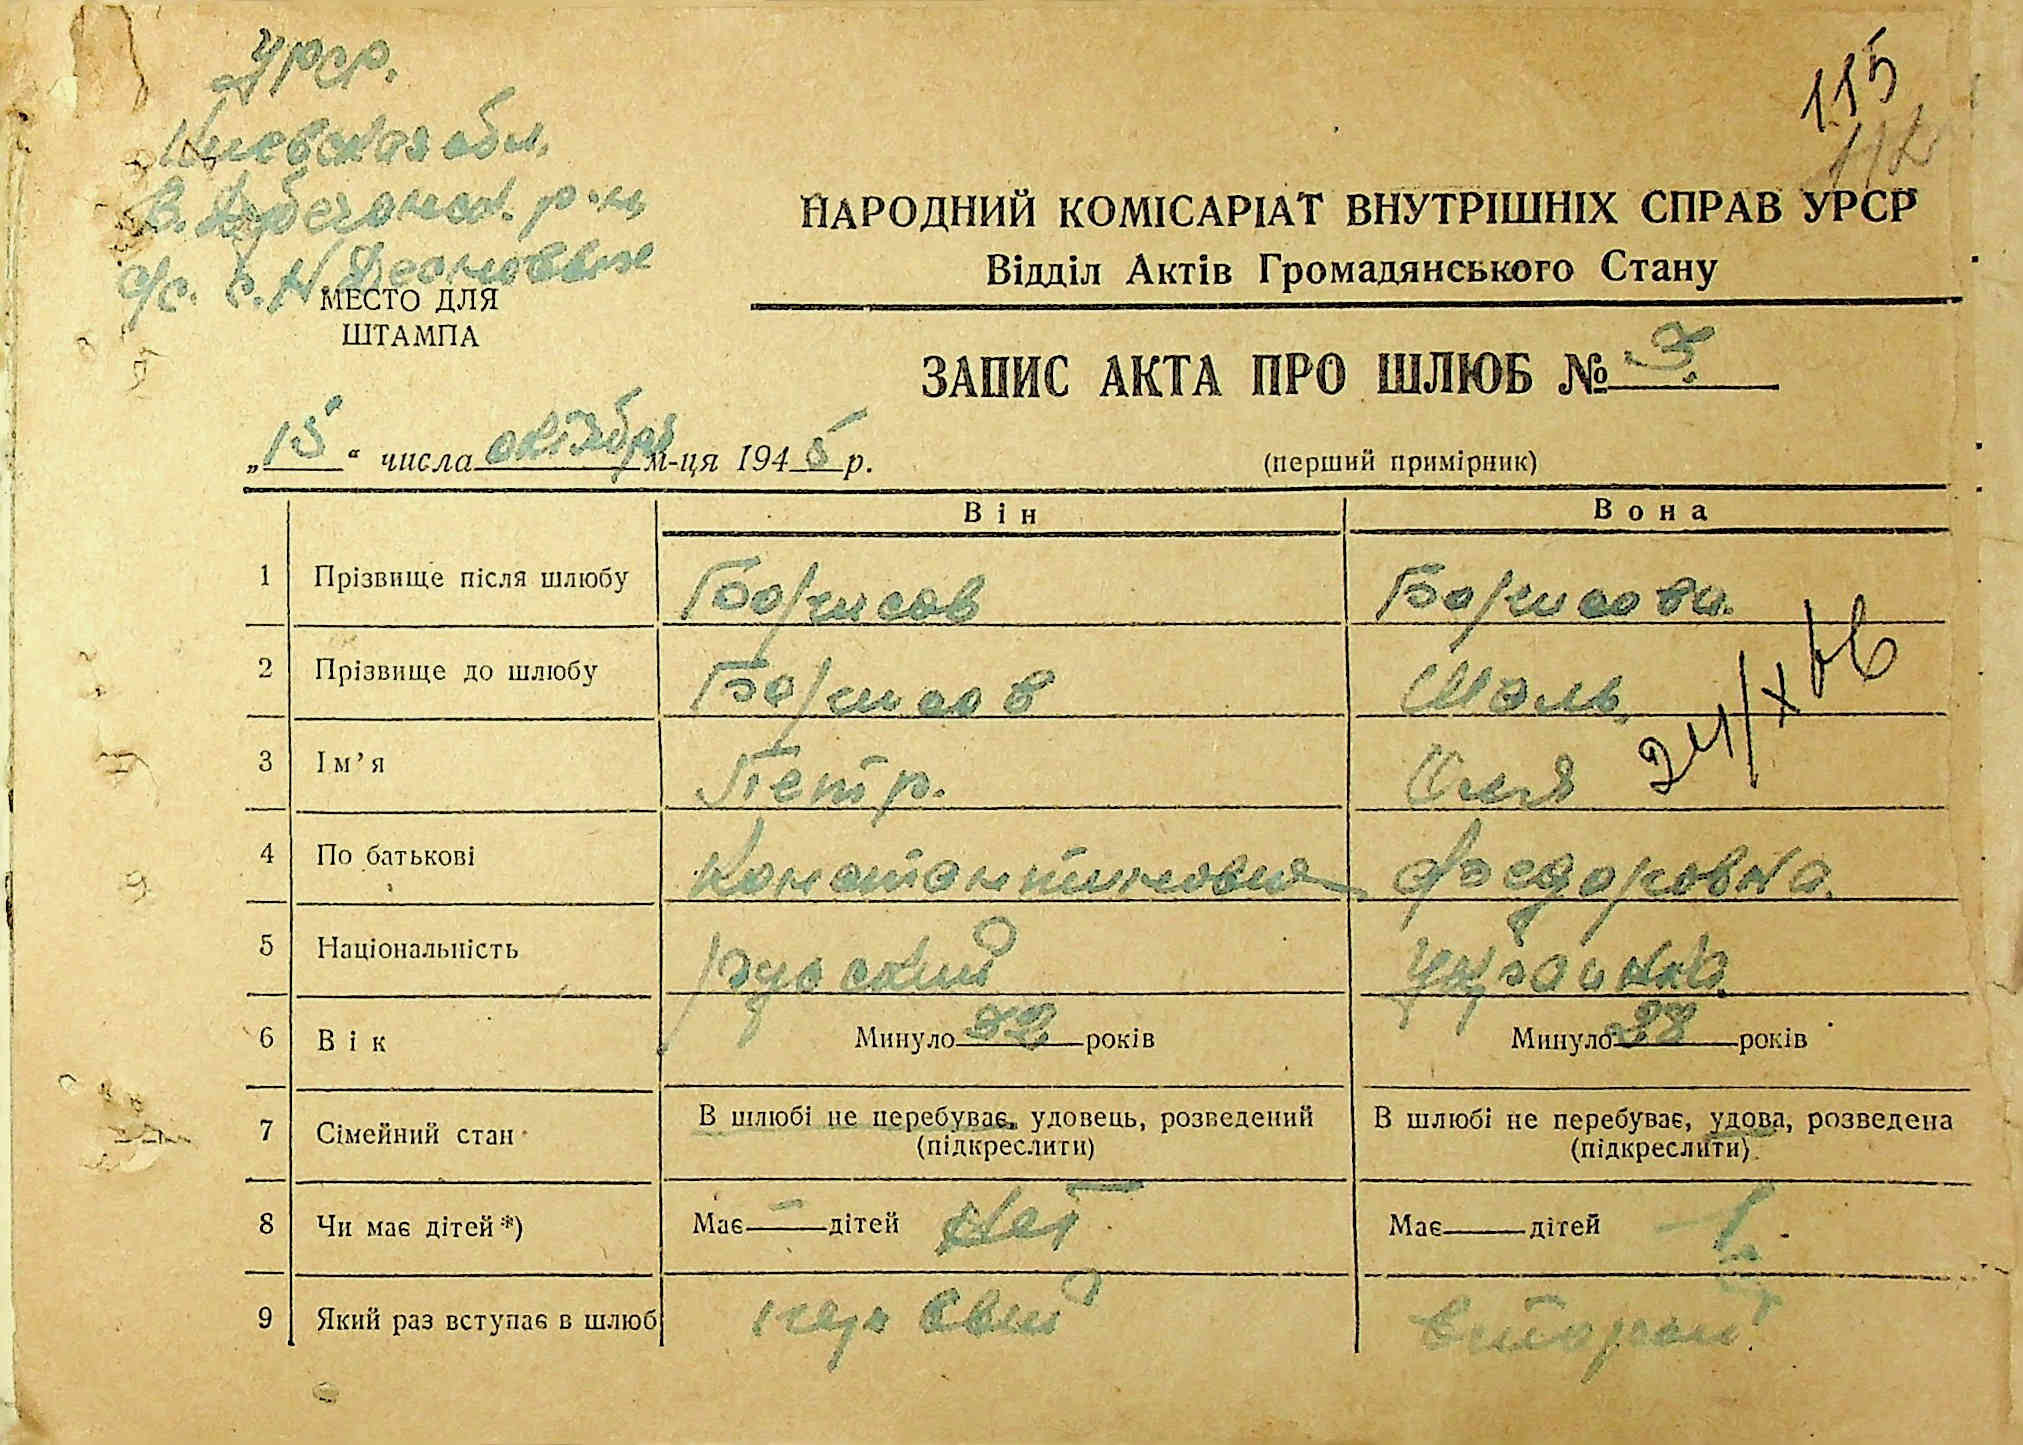 УРСР.
Киевская обл.
В. Дубечанск. р-н
с/с. с. Н Десноввия
115
112
НАРОДНИЙ КОМІСАРІАТ ВНУТРІШНІХ СПРАВ УРСР
Відділ Актів Громадянського Стану
МЕСТО ДЛЯ
ШТАМПА
ЗАПИС АКТА ПРО ШЛЮБ № 3.
„15“ числа октября м-ця 1945 р.
(перший примірник)
Він Вона
1 Прізвище після шлюбу Борисов Борисова.
2 Прізвище до шлюбу Борисов Шаль
3 Ім’я Петр. Оля
24/X 46
4 По батькові Константинович Федоровна.
5 Національність русский украинка.
6 Вік Минуло 32 років Минуло 27 років
7 Сімейний стан В шлюбі не перебуває, удовець, розведений В шлюбі не перебуває, удова, розведена
(підкреслити) (підкреслити)
8 Чи має дітей *) Має — дітей Нет Має дітей - 1
9 Який раз вступає в шлюб первый второй